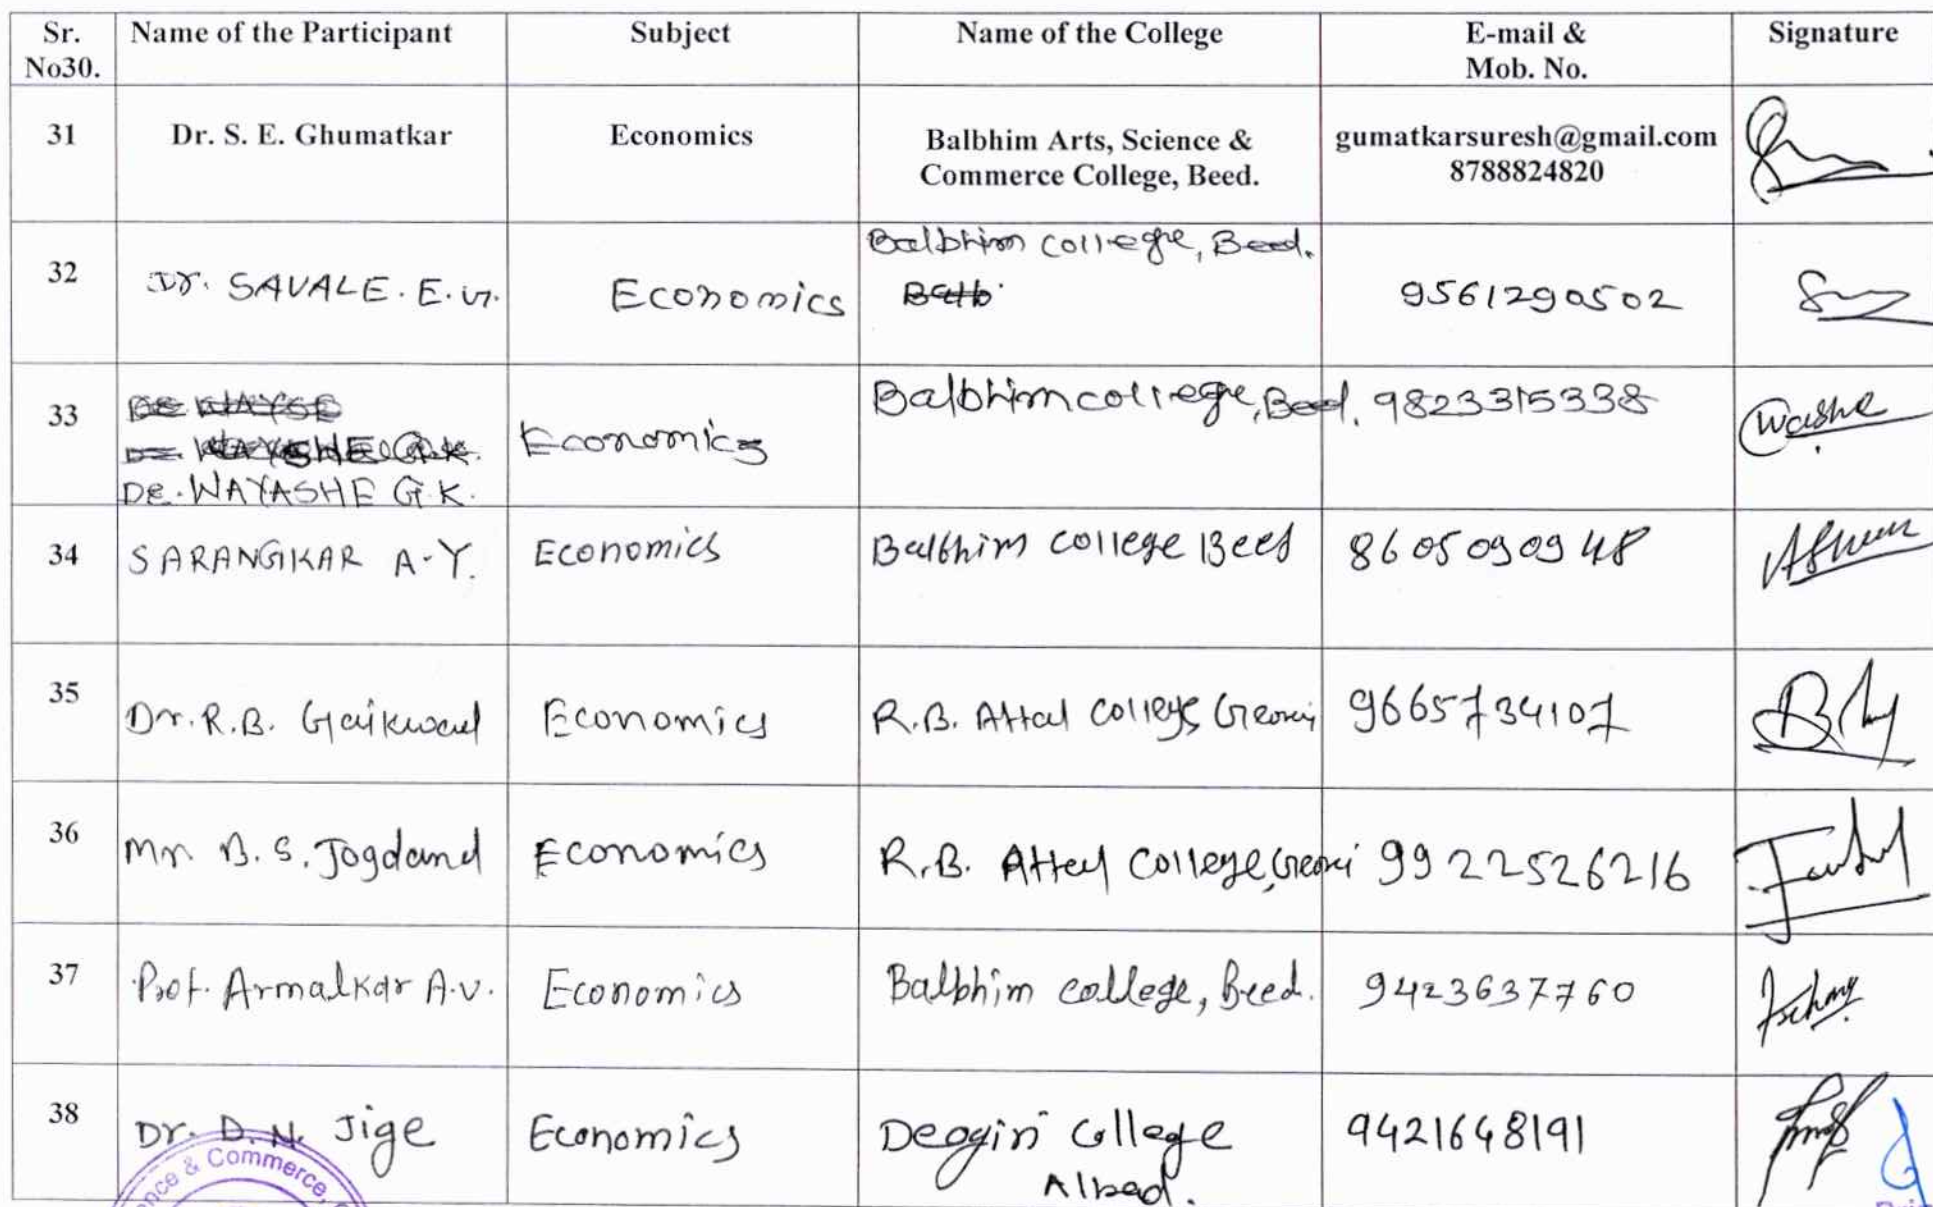 Sr. No30. Name of the Participant Subject Name of the College E-mail & Mob. No. Signature
31 Dr. S. E. Ghumatkar Economics Balbhim Arts, Science & Commerce College, Beed. gumatkarsuresh@gmail.com 8788824820
32 Dr. SAVALE. E. G. Economics Balbhim college, Beed. 9561290502
33 DR. WAYASHE G.K. Economics Balbhim college, Beed. 9823315338
34 SARANGIKAR A.Y. Economics Balbhim college Beed 8605090948
35 Dr. R.B. Gaikwad Economics R.B. Attal College, Georai 9665734107
36 Mr B.S. Jogdand Economics R.B. Attal College, Georai 9922526216
37 Prof. Armalkar A.V. Economics Balbhim college, Beed. 9423637760
38 Dr. D.N. Jige Economics Deogiri College 9421648191
& Commerce,